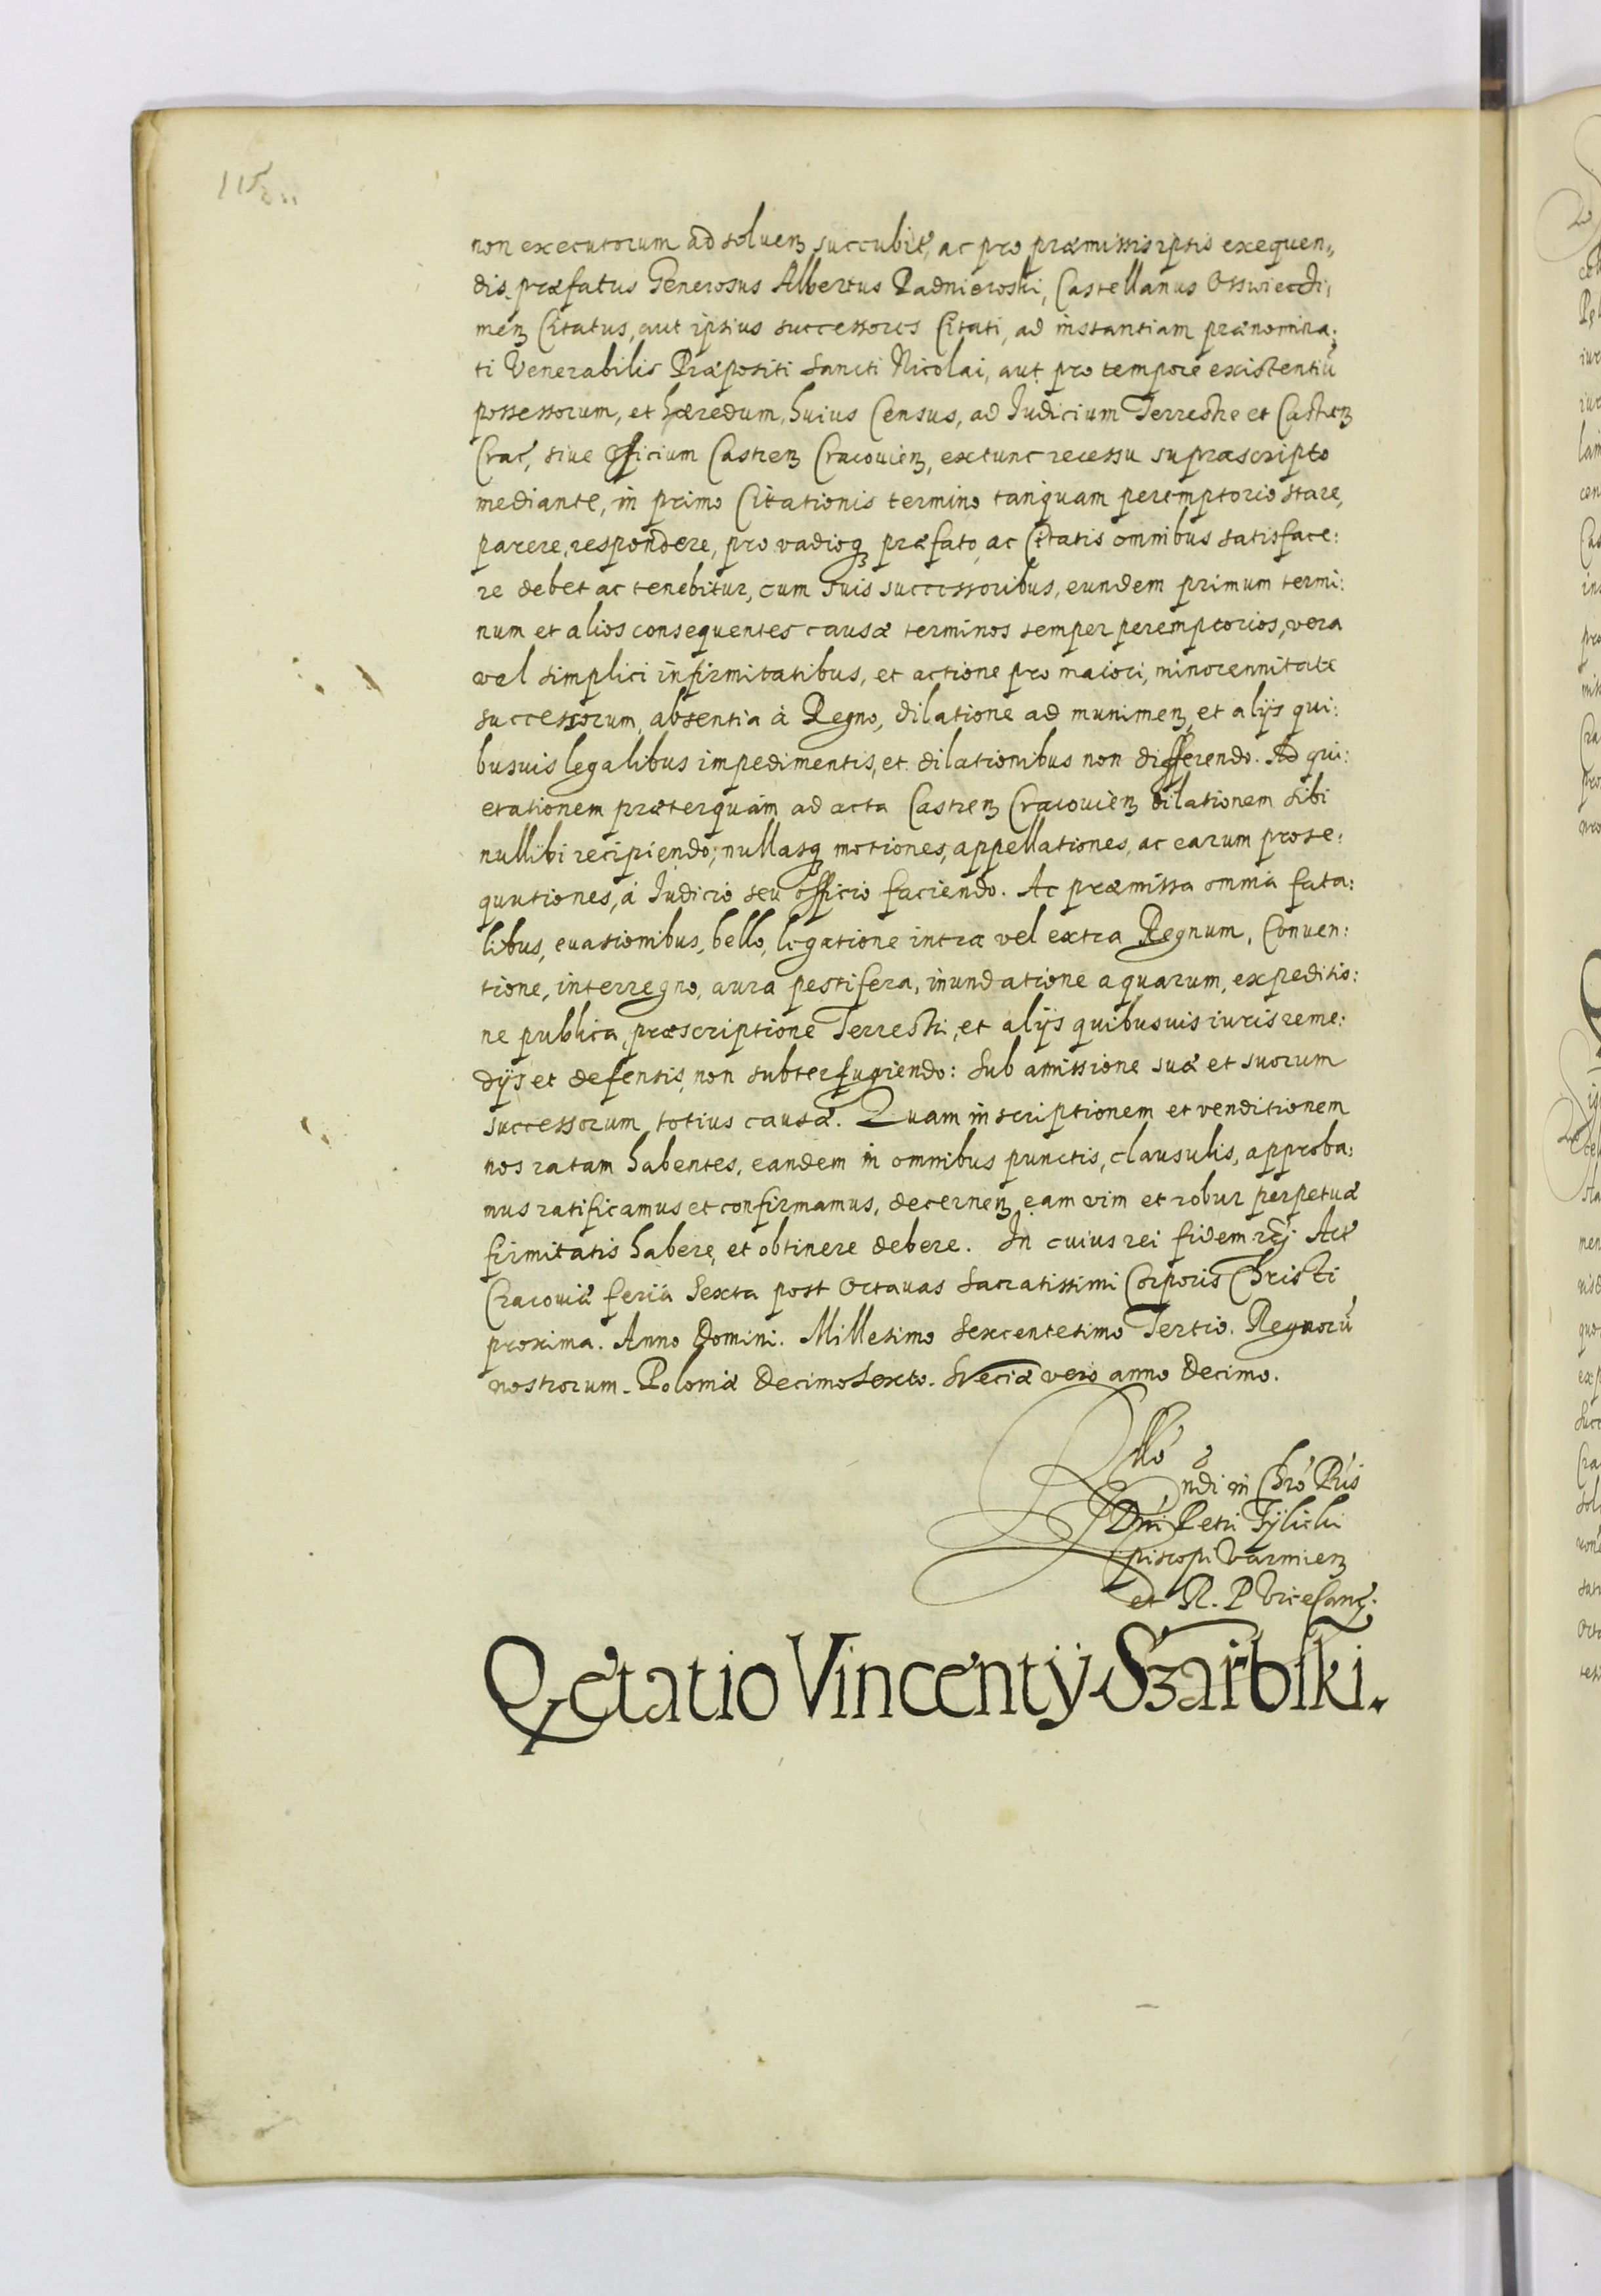 115
non executorum ad soluenꝫ succubit̃, ac pro præmissis ipsis exequen„
dis, præfatus Generosus Albertus Padniewski, Castellanus Osswiecdi„
menꝫ Citatus, aut ipsius successores Citati, ad instantiam prænomina:
ti Venerabilis Præpositi Sancti Nicolai, aut pro tempore existentiũ
possessorum, et hæredum, huius Census, ad Iudicium Terrestre et Castrenꝫ
Crac̃, siue Officium Castrenꝫ Cracouienꝫ, extunc recessu supræscripto
mediante, in primo Citationis termino tanquam peremptorio stare,
parere, respondere, pro vadioqꝫ præfato, ac Citatis omnibus satisface:
re debet ac tenebitur, cum suis successoribus, eundem primum termi:
num et alios consequentes causæ terminos semper peremptorios, vera
vel simplici infirmitatibus, et actione pro maiori, minorennitate
successorum, absentia à Regno, dilatione ad munimenꝫ, et alijs qui:
busuis legalibus impedimentis, et dilationibus non differendo. Ad qui:
etationem præterquàm ad acta Castrenꝫ Cracouienꝫ dilationem sibi
nullibi recipiendo; nullasqꝫ motiones, appellationes, ac earum prose:
qutiones, à Iudicio seu officio faciendo. Ac præmissa omnia fata:
libus, euasionibus, bello, legatione intra vel extra Regnum, Conuen:
tione, interregno, aura pestifera, inundatione aquarum, expeditio:
ne publica, præscriptione Terrestri, et alijs quibusuis iuris reme:
dijs et defensis, non subterfugiendo: Sub amissione suæ et suorum
successorum totius causæ. Quam inscriptionem et venditionem
nos ratam habentes, eandem in omnibus punctis, clausulis, approba:
mus ratificamus et confirmamus, decernenꝫ eam vim et robur perpetuæ
firmitatis habere, et obtinere debere. In cuius rei fidem rc̃j. Act̃
Cracouiæ feria Sexta post Octauas Sacratissimi Corporis Christi
proxima. Anno Domini. Millesimo Sexcentesimo Tertio. Regnorũ
nostrorum. Poloniæ DecimoSexto. Sveciæ vero anno Decimo.
Rllõ
ndi in Chrõ Pris
Dni Petri Tÿlicki
Episcopi Varmienꝫ
et R. P Vicecanc̃.
Qetatio Vincentÿ Szarbski.